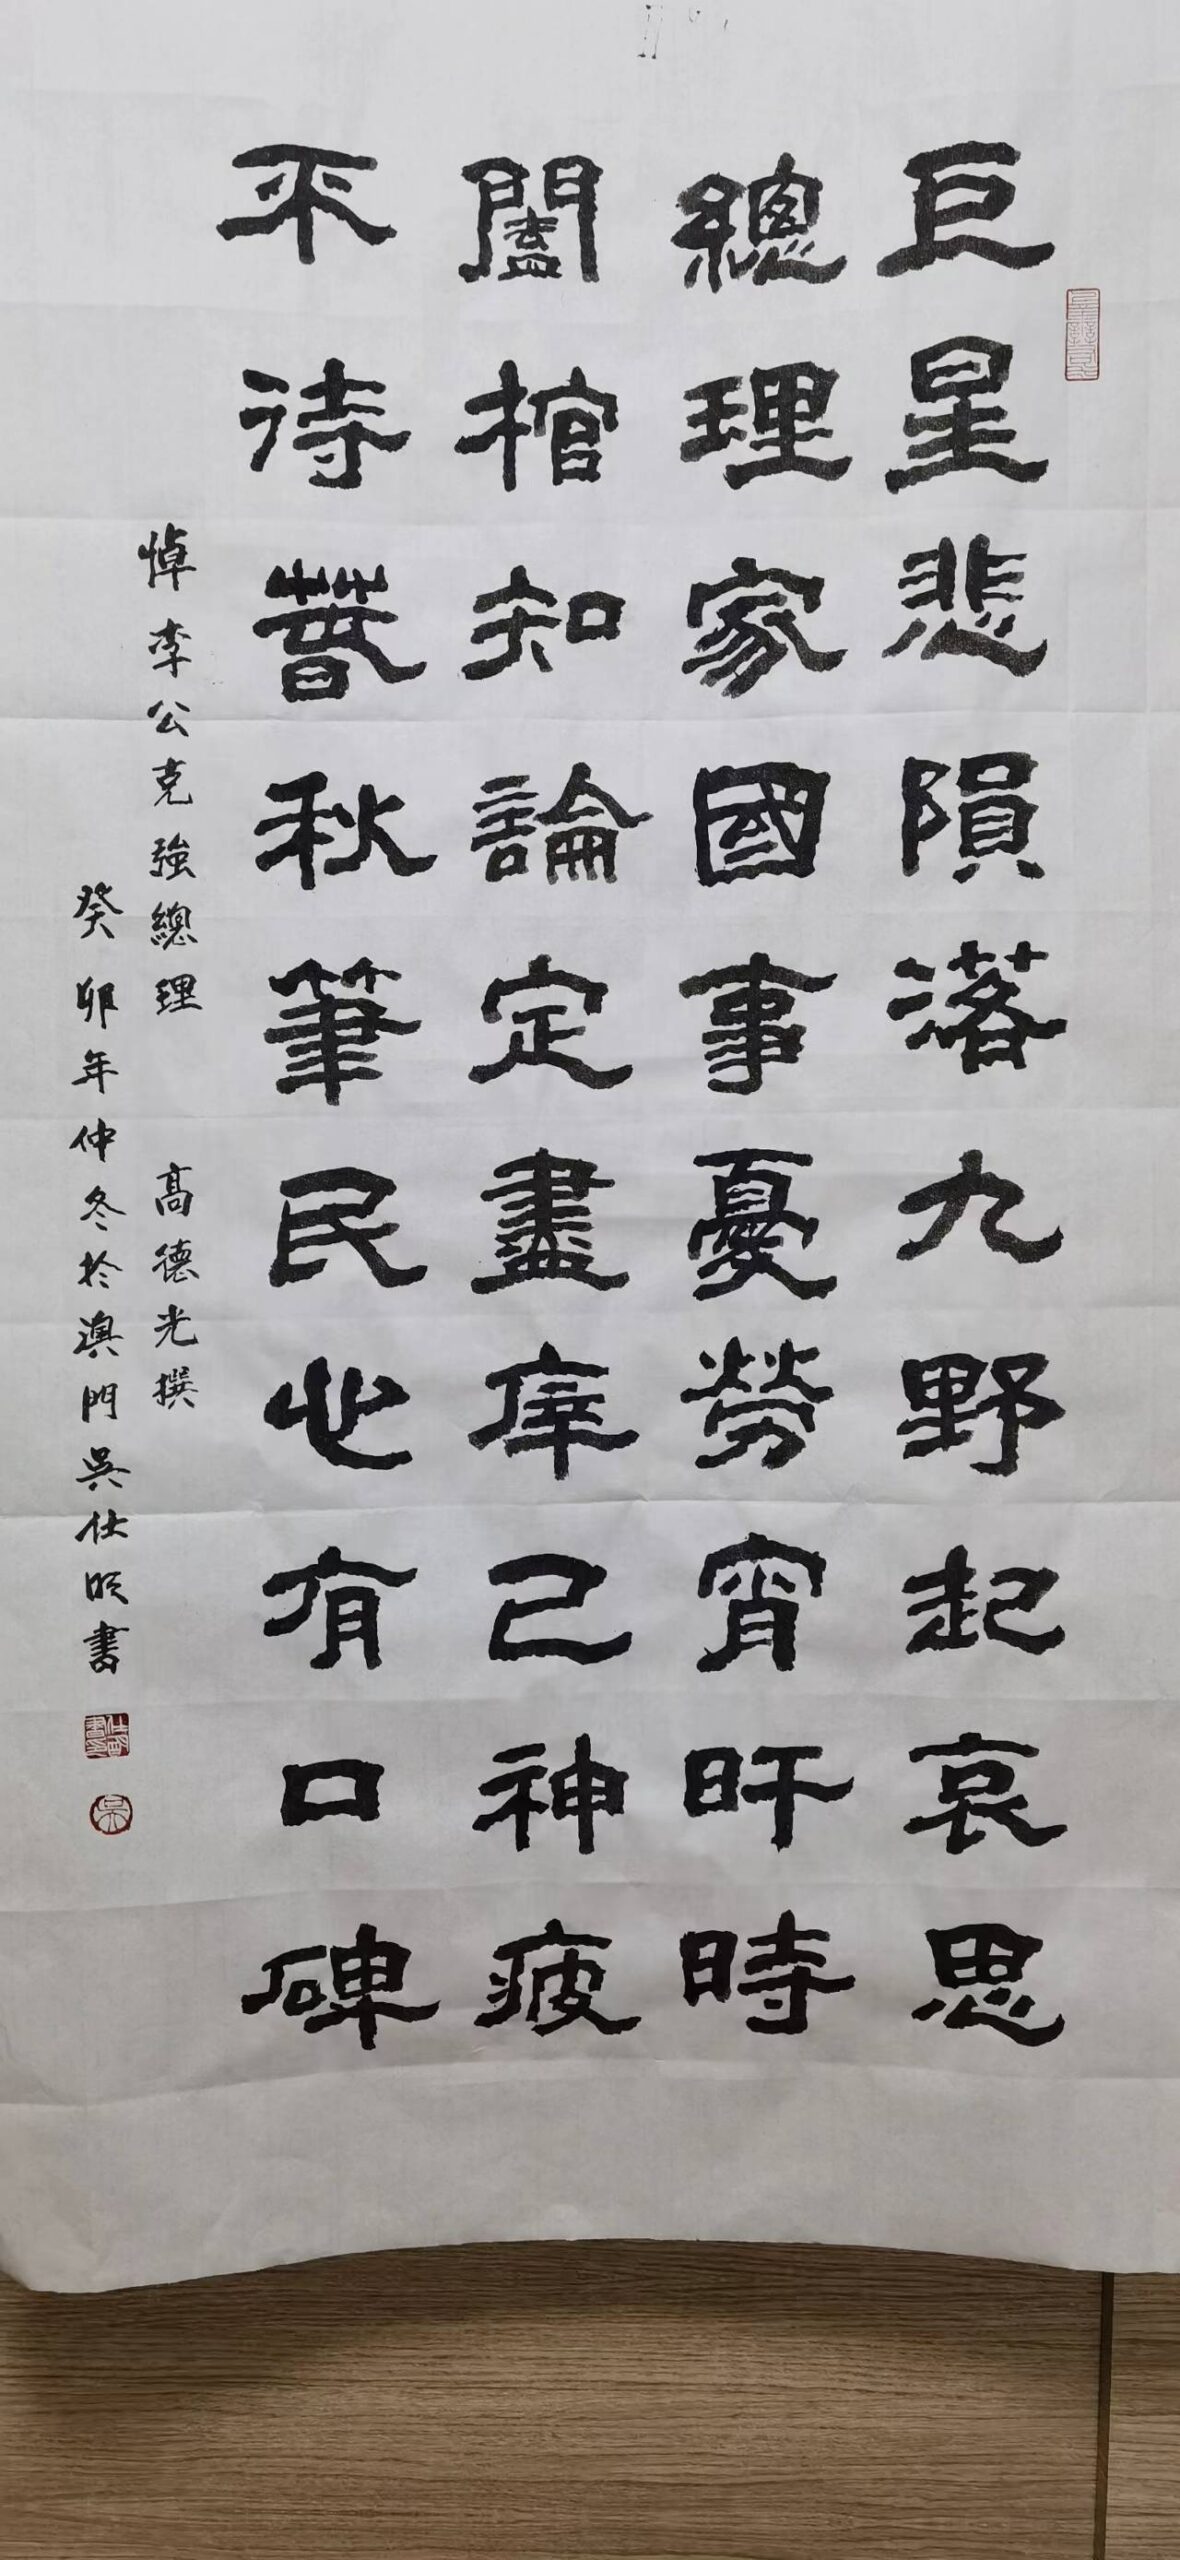 巨星悲隕落九野起哀思
總理家國事憂勞宵旰時
闔棺知論定盡瘁己神疲
不待春秋筆民心有口碑
悼李公克強總理 高德光撰
癸卯年仲冬於澳門吳仕明書
吳